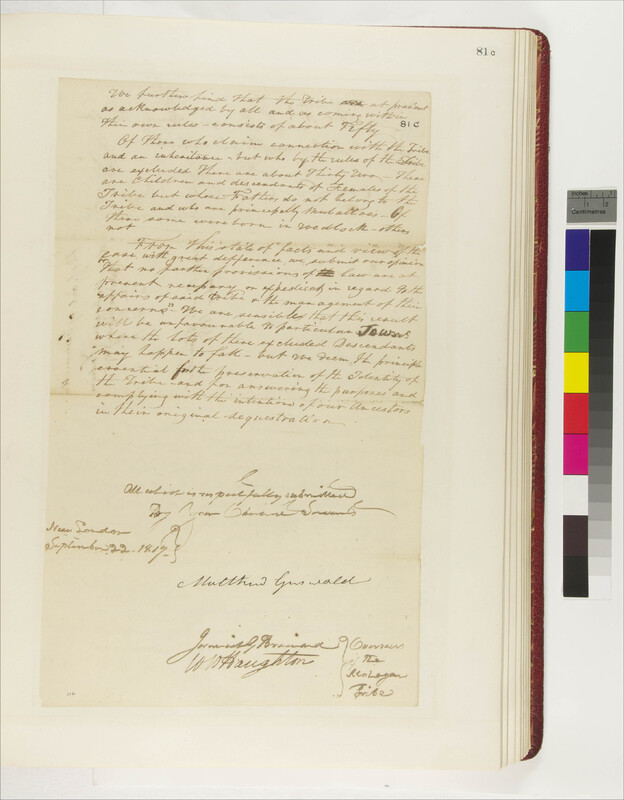 81c
We further find that the Tribe at present
as acknowledged by all and as coming within
81 C
their own rules - consists of about Fifty
Of those who claim connection with the Tribe
and an inheritance - but who by the rules of the Tribe
are excluded there are about Thirty Two - These
are Children and descendants of Females of the
Tribe but whose Fathers do not belong to the
Tribe and who are principally Mulattoes - Of
these some were born in wedlock - others
not
From this state of facts and view of the
case, with great defference we submit our opinion
that no further provissions of Law are at
present necessary or expedient in regard to the
affairs of said tribe & the management of their
concerns". We are sensible that this result
will be unfavourable to particular Towns
where the lots of these excluded Descendants
may happen to fall - but we deem the principle
essential for the preservation of the Identity of
the Tribe - and for answering the purposes and
complying with the intention of our Ancestors
in their original sequestration
All which is respectfully submitted
By Your Servants
New London
September 22. 1817
Matthew Griswold
Jeremiah G Brainard
W Haughton
Overseers
of the
Mohegan
Tribe
Inches
Centimetres